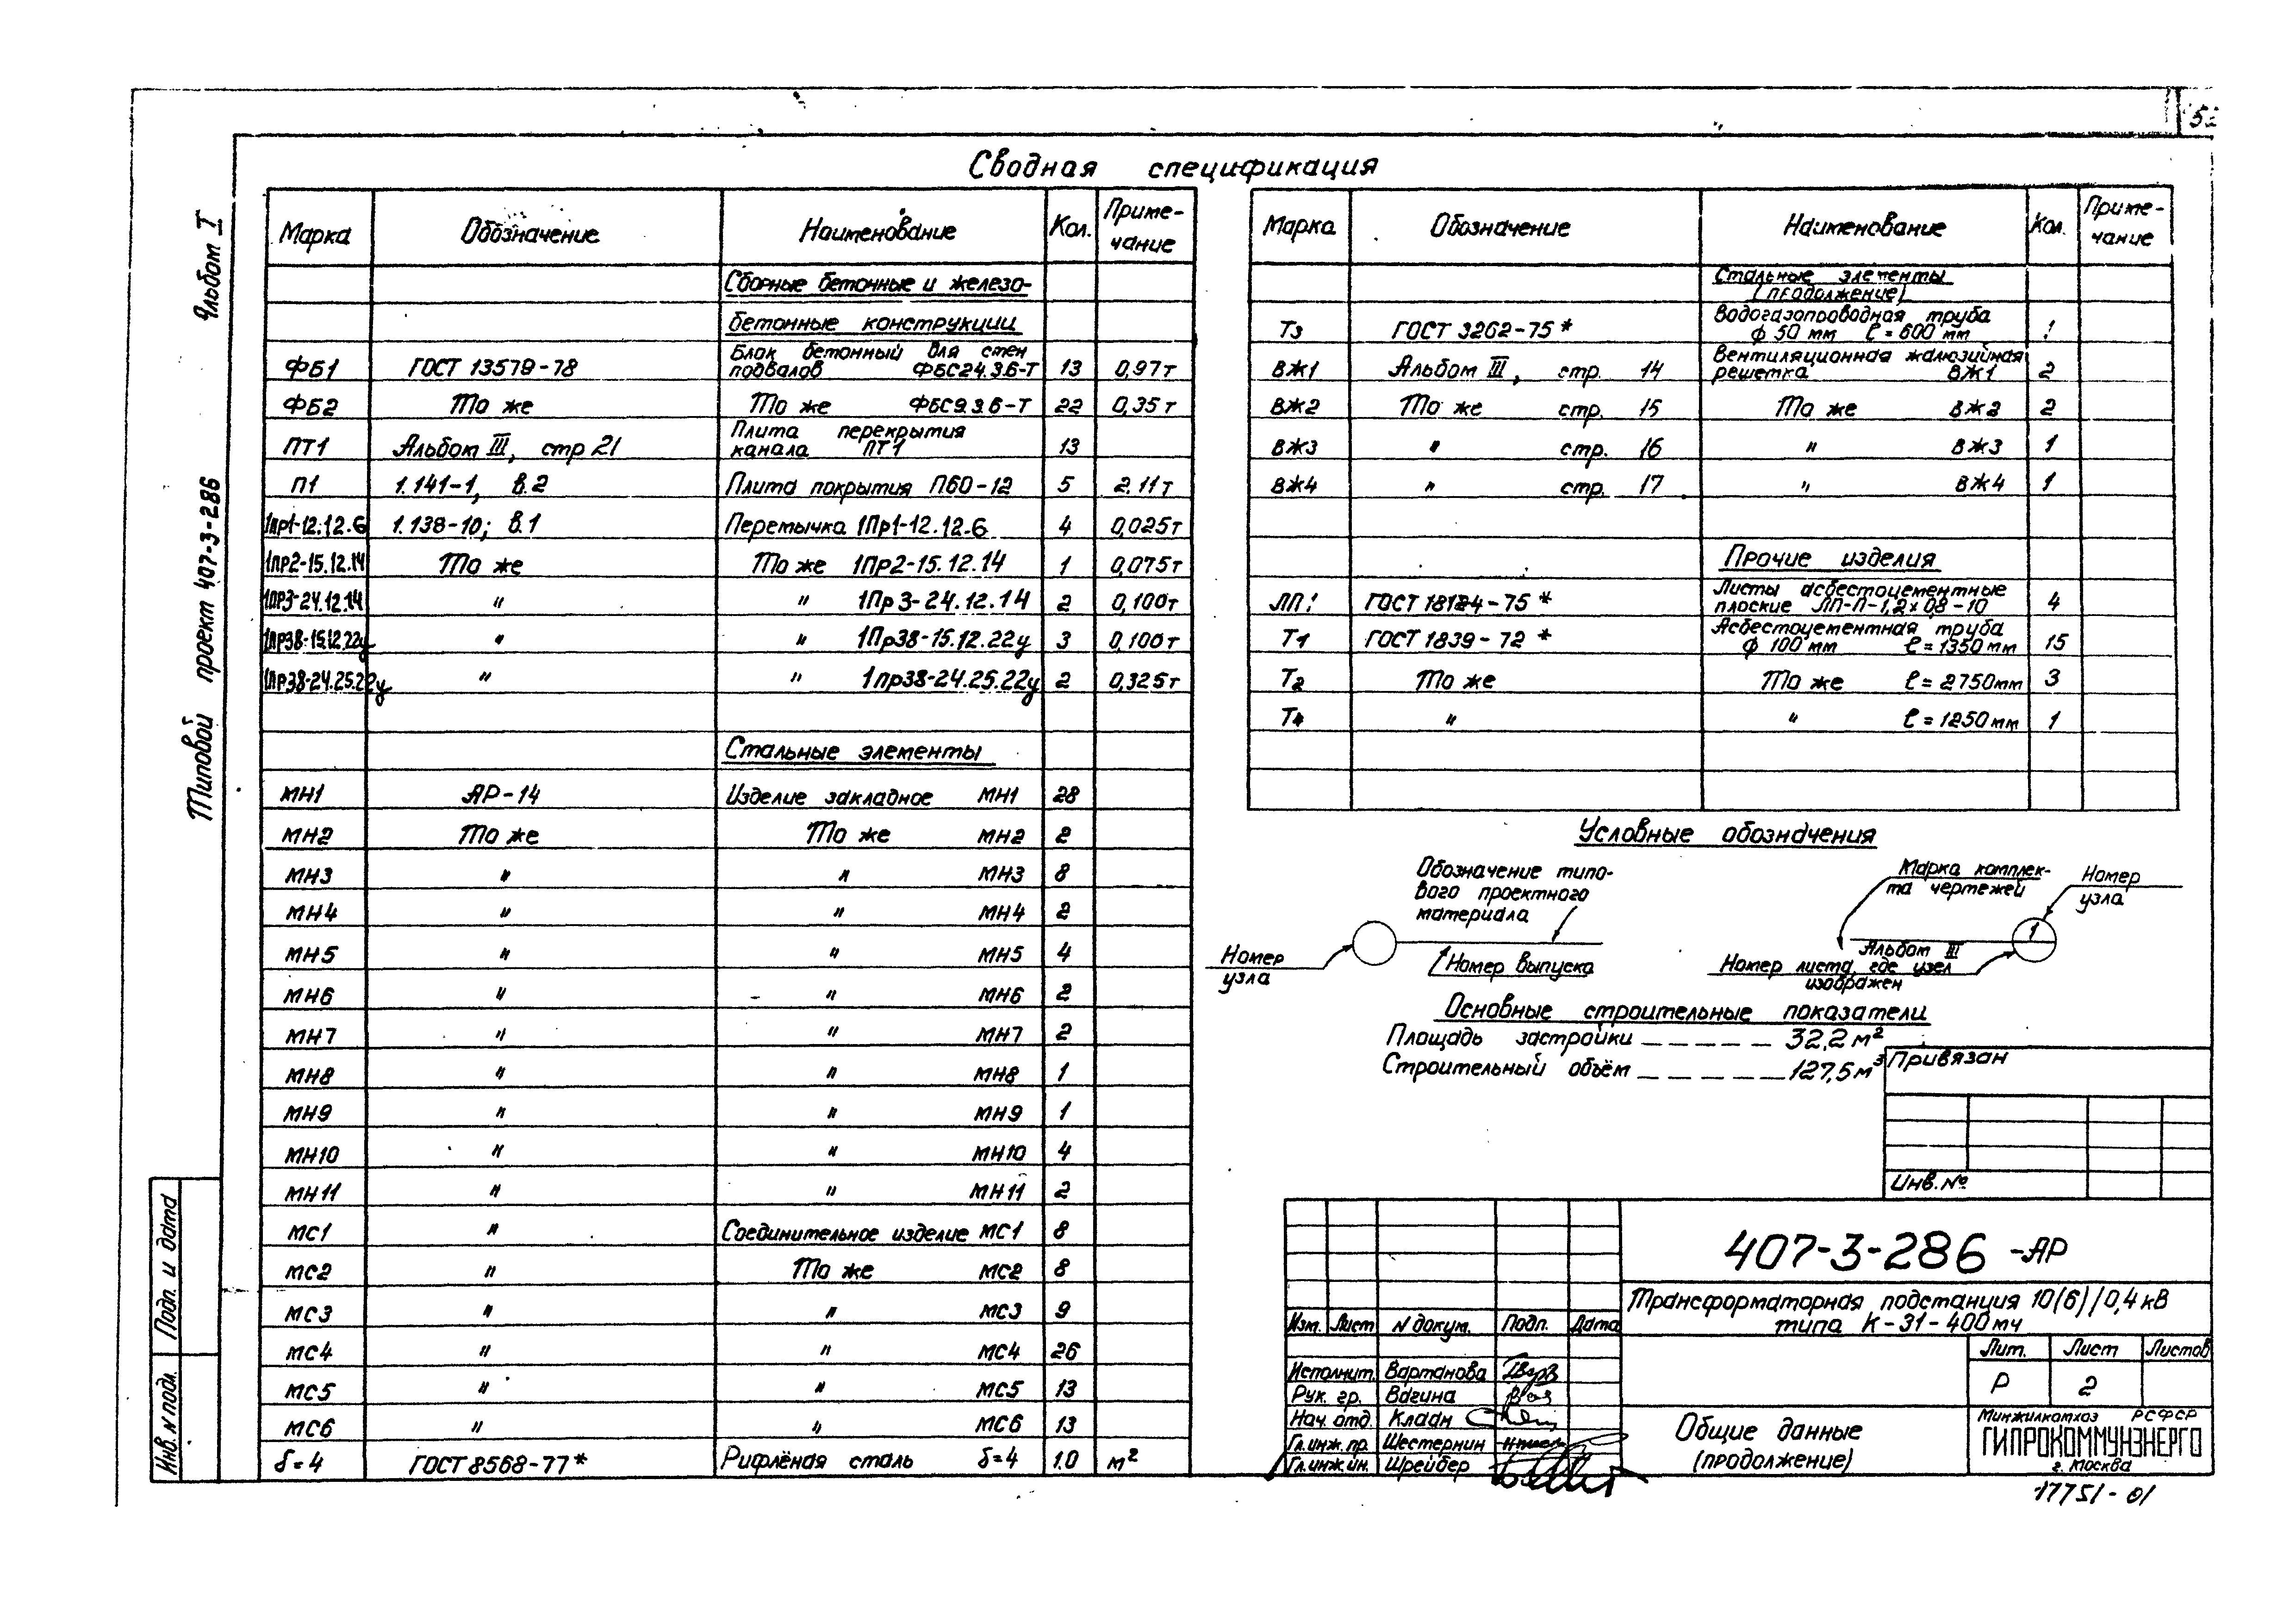 Сводная спецификация
Альбом I
Типовой проект 407-3-286
Марка Обозначение Наименование Кол. Приме-
чание
Сборные бетонные и железо-
бетонные конструкции
ФБ1 ГОСТ 13579-78 Блок бетонный для стен подвалов ФБС24.3.6-Т 13 0,97т
ФБ2 То же То же ФБС9.3.6-Т 22 0,35т
ПТ1 Альбом III, стр 21 Плита перекрытия канала ПТ1 13
П1 1.141-1, в.2 Плита покрытия П60-12 5 2.11т
1пр1-12.12.6 1.138-10; в.1 Перемычка 1Пр1-12.12.6 4 0,025т
1пр2-15.12.14 То же То же 1Пр2-15.12.14 1 0,075т
1пр3-24.12.14 " " 1Пр3-24.12.14 2 0,100т
1пр38-15.12.22у " " 1Пр38-15.12.22у 3 0,100т
1пр38-24.25.22у " " 1пр38-24.25.22у 2 0,325т
Стальные элементы
МН1 АР-14 Изделие закладное МН1 28
МН2 То же То же МН2 2
МН3 " " МН3 8
МН4 " " МН4 2
МН5 " " МН5 4
МН6 " " МН6 2
МН7 " " МН7 2
МН8 " " МН8 1
МН9 " " МН9 1
МН10 " " МН10 4
МН11 " " МН11 2
МС1 " Соединительное изделие МС1 8
МС2 " То же МС2 8
МС3 " " МС3 9
МС4 " " МС4 26
МС5 " " МС5 13
МС6 " " МС6 13
δ=4 ГОСТ 8568-77* Рифлёная сталь δ=4 1.0 м²
Марка Обозначение Наименование Кол. Приме-
чание
Стальные элементы
(продолжение)
Т3 ГОСТ 3262-75* Водогазопроводная труба ф 50 мм ℓ=600 мм 1
ВЖ1 Альбом III, стр. 14 Вентиляционная жалюзийная решетка ВЖ1 2
ВЖ2 То же стр. 15 То же ВЖ2 2
ВЖ3 " стр. 16 " ВЖ3 1
ВЖ4 " стр. 17 " ВЖ4 1
Прочие изделия
ЛП1 ГОСТ 18124-75* Листы асбестоцементные плоские ЛП-П-1,2х0,8-10 4
Т1 ГОСТ 1839-72* Асбестоцементная труба ф 100 мм ℓ=1350 мм 15
Т2 То же То же ℓ=2750мм 3
Т4 " " ℓ=1250 мм 1
Условные обозначения
Обозначение типо-
вого проектного
материала
Номер
узла
Номер выпуска
Марка комплек-
та чертежей
Номер
узла
1
Альбом III
Номер листа, где узел
изображен
Основные строительные показатели
Площадь застройки — — — — — 32,2 м²
Строительный объём — — — — — 127,5 м³
Привязан
Инв. №
407-3-286-АР
Трансформаторная подстанция 10(6)/0,4 кВ
типа К-31-400мч
Изм. Лист N докум. Подп. Дата
Исполнит. Вартанова
Рук. гр. Вагина
Нач. отд. Клаан
Гл. инж. пр. Шестернин
Гл. инж. ин. Шрейбер
Лит. Лист Листов
Р 2
Общие данные
(продолжение)
Минжилкомхоз РСФСР
ГИПРОКОММУНЭНЕРГО
г. Москва
17751-01
Подп. и дата
Инв. N подл.